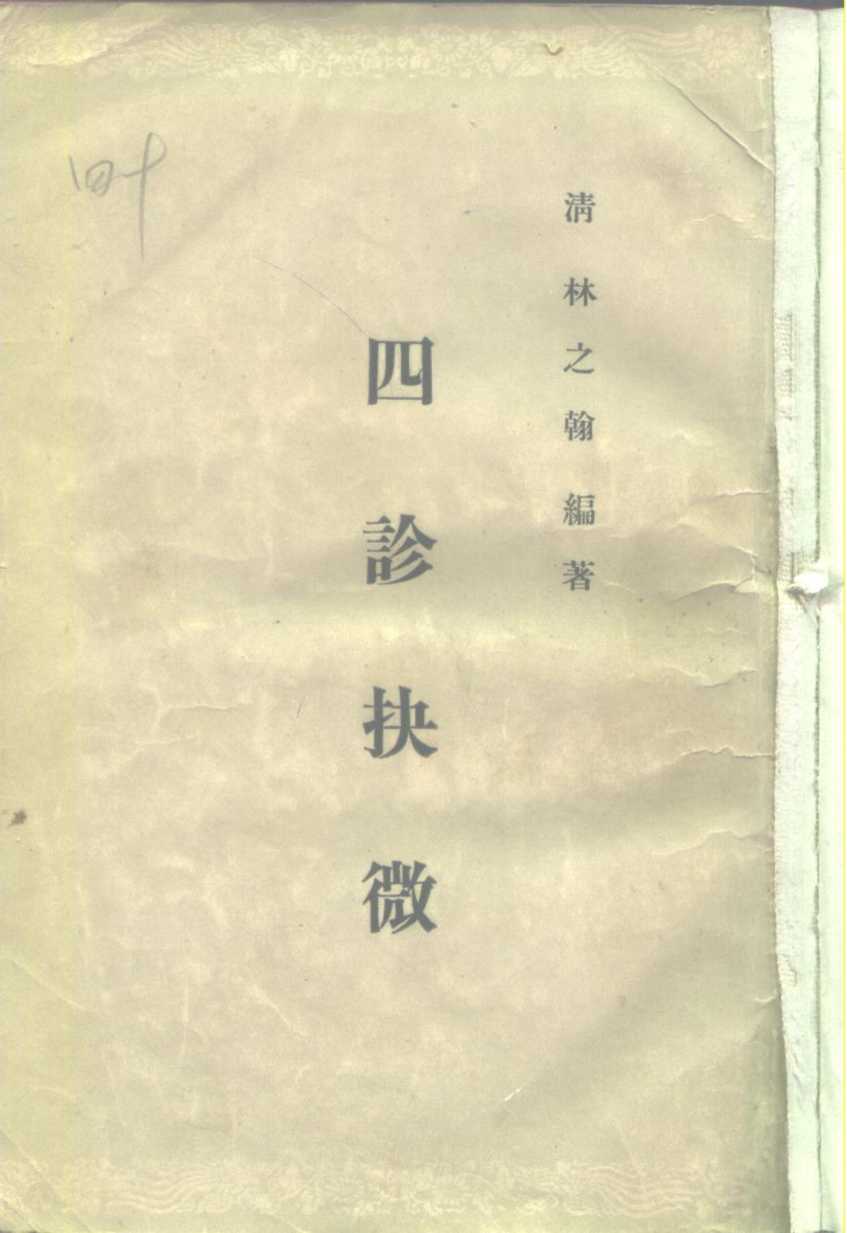 清林之翰編著
四診抉微